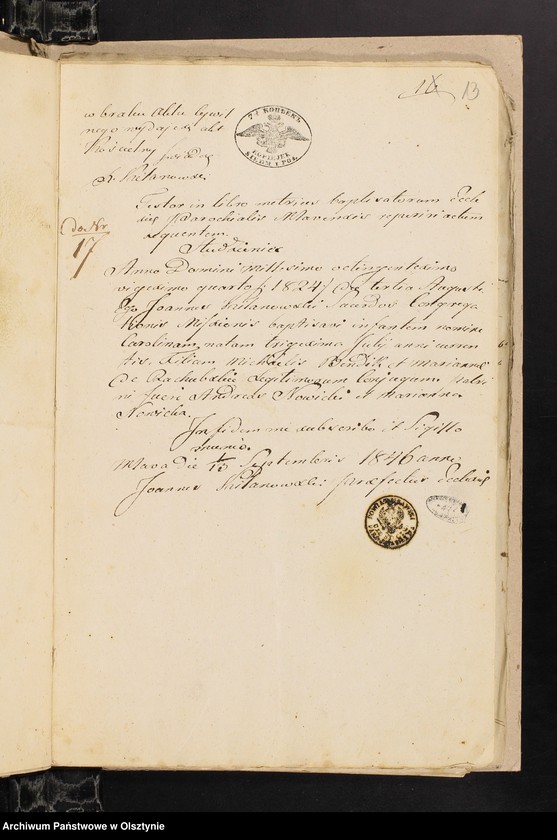 18 13
w braku Aktu Cywil
nego wydaje się akt
Kościelny
X. Kitanowski
7½ КОПѢЕКЪ
KOPIEJEK
SIEDM I PÓŁ
do Nr
17
Testor in libro metrices baptisatorum Eccle
siæ Parochialis Mlavensis reperiri actum
sequentem.
Studzieniec
Anno Domini Millesimo octingentesimo
vigesimo quarto /: 1824 :/ die tertia Augusti
Ego Joannes Kitanowski Sacerdos Congrega
tionis Missionis baptisavi infantem nomine
Carolinam, natam trigesima Julij anni curren
tis. Filiam Michaelis Bendik et Mariannæ
de Rachubskie Legitimorum Conjugum Patri
ni fuere Andreas Nowicki et Marianna
Nowicka.
In fidem me subscribo et Sigillo
munio.
Mlava die 1/13 Septembris 1846 anno
Joannes Kitanowski præfectus Ecclesiæ
Archiwum Państwowe w Olsztynie